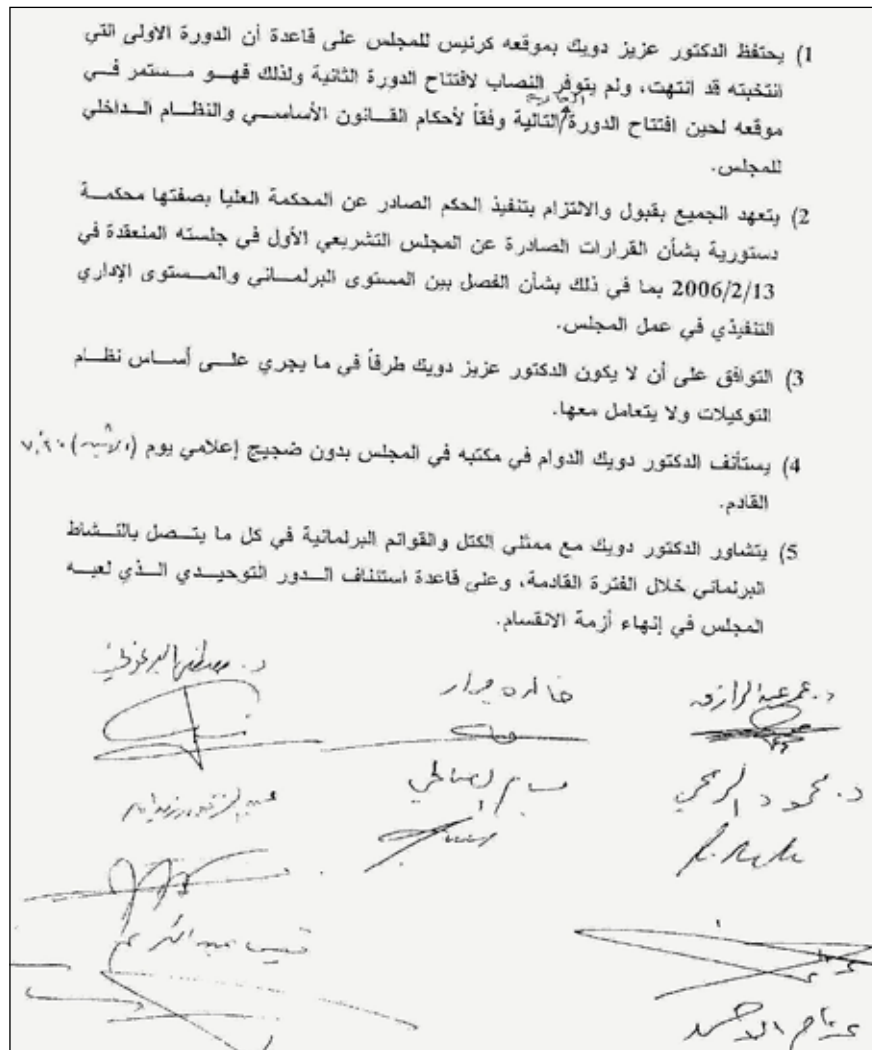 1) يحتفظ الدكتور عزيز دويك بموقعه كرئيس للمجلس على قاعدة أن الدورة الأولى التي
انتخبته قد انتهت، ولم يتوفر النصاب لافتتاح الدورة الثانية ولذلك فهو مستمر في
موقعه لحين افتتاح الدورة التالية وفقاً لأحكام القانون الأساسي والنظام الداخلي
للمجلس.
2) يتعهد الجميع بقبول والالتزام بتنفيذ الحكم الصادر عن المحكمة العليا بصفتها محكمة
دستورية بشأن القرارات الصادرة عن المجلس التشريعي الأول في جلسته المنعقدة في
2006/2/13 بما في ذلك بشأن الفصل بين المستوى البرلماني والمستوى الإداري
التنفيذي في عمل المجلس.
3) التوافق على أن لا يكون الدكتور عزيز دويك طرفاً في ما يجري على أساس نظام
التوكيلات ولا يتعامل معها.
4) يستأنف الدكتور دويك الدوام في مكتبه في المجلس بدون ضجيج إعلامي يوم
القادم.
5) يتشاور الدكتور دويك مع ممثلي الكتل والقوائم البرلمانية في كل ما يتصل بالنشاط
البرلماني خلال الفترة القادمة، وعلى قاعدة استئناف الدور التوحيدي الذي لعبه
المجلس في إنهاء أزمة الانقسام.
د. عمر عبد الرازق
خالده جرار
د. مصطفى البرغوثي
د. محمود الرمحي
بسام الصالحي
قيس عبد الكريم
عزام الاحمد